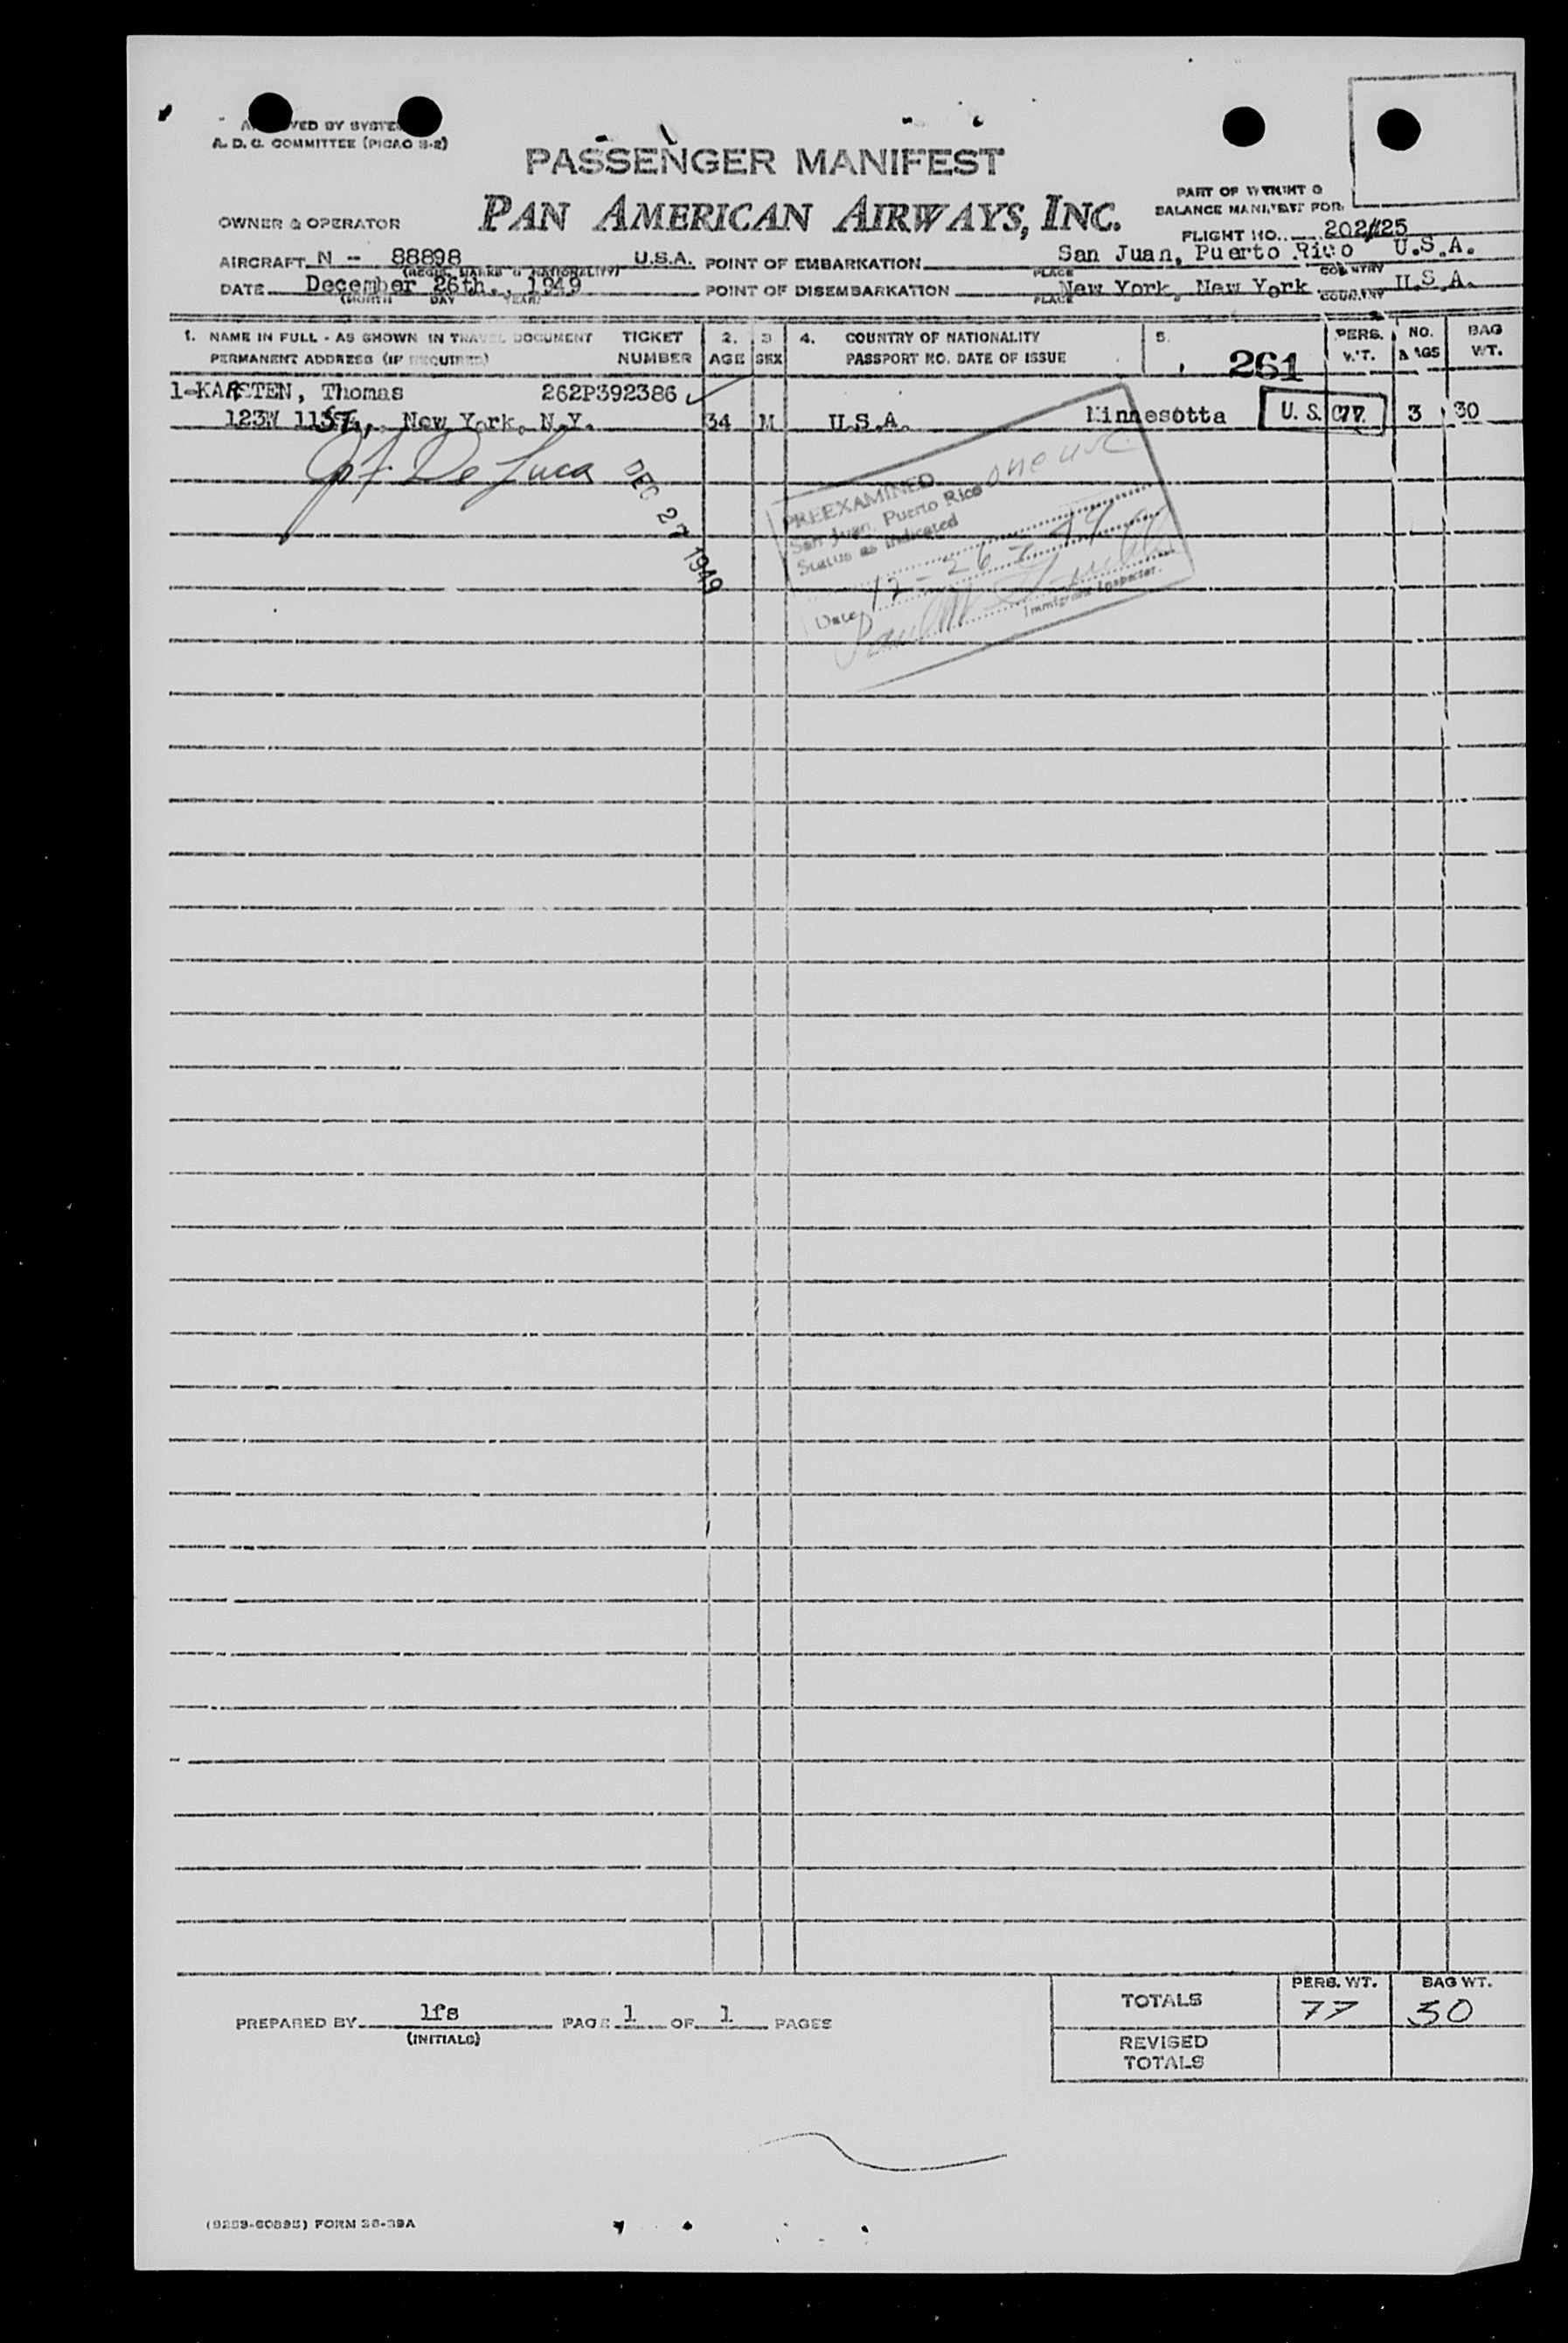 APPROVED BY SYSTEM
A. D. C. COMMITTEE (PICAO S-2)
PASSENGER MANIFEST
PAN AMERICAN AIRWAYS, INC.
PART OF WEIGHT &
BALANCE MANIFEST FOR
OWNER & OPERATOR
FLIGHT NO. 202/125
AIRCRAFT N - 88898 U.S.A. POINT OF EMBARKATION San Juan, Puerto Rico U.S.A.
(REGIS. MARKS & NATIONALITY) PLACE COUNTRY
DATE December 26th., 1949 POINT OF DISEMBARKATION New York, New York U.S.A.
(MONTH DAY YEAR) PLACE COUNTRY
1. NAME IN FULL - AS SHOWN IN TRAVEL DOCUMENT TICKET 2. 3 4. COUNTRY OF NATIONALITY 5. PERS. NO. BAG
PERMANENT ADDRESS (IF REQUIRED) NUMBER AGE SEX PASSPORT NO. DATE OF ISSUE 261 WT. BAGS WT.
1-KARSTEN, Thomas 262P392386
123W 11 ST., New York, N.Y. 34 M U.S.A. Minnesotta U. S. 77 3 30
De Luca
DEC 27 1949
PREEXAMINED
San Juan, Puerto Rico
Status as indicated
one usc
Date 12-26-49
Immigrant Inspector.
PERS. WT. BAG WT.
TOTALS 77 30
PREPARED BY lfs PAGE 1 OF 1 PAGES
(INITIALS)
REVISED
TOTALS
FORM 26-39A